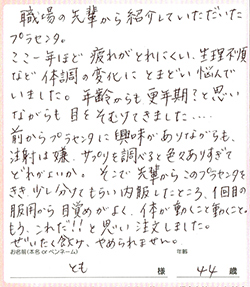 職場の先輩から紹介していただいた
プラセンタ。
ここ一年ほど疲れがとれにくい、生理不順
など体調の変化にとまどい悩んで
いました。年齢からも更年期?と思い
ながらも目をそむけてきました‥‥
前からプラセンタに興味がありながらも、
注射は嫌、サプリを調べると色々ありすぎて
どれがよいか。そこで先輩からこのプラセンタを
きき少し分けてもらい内服したところ、1回目の
服用から目覚めがよく、体が動くこと動くこと。
もう、これだ!!と思い注文しました。
ぜいたく飲ケ、やめられません。
お名前(本名 or ペンネーム) 年齢
とも 様 44 歳